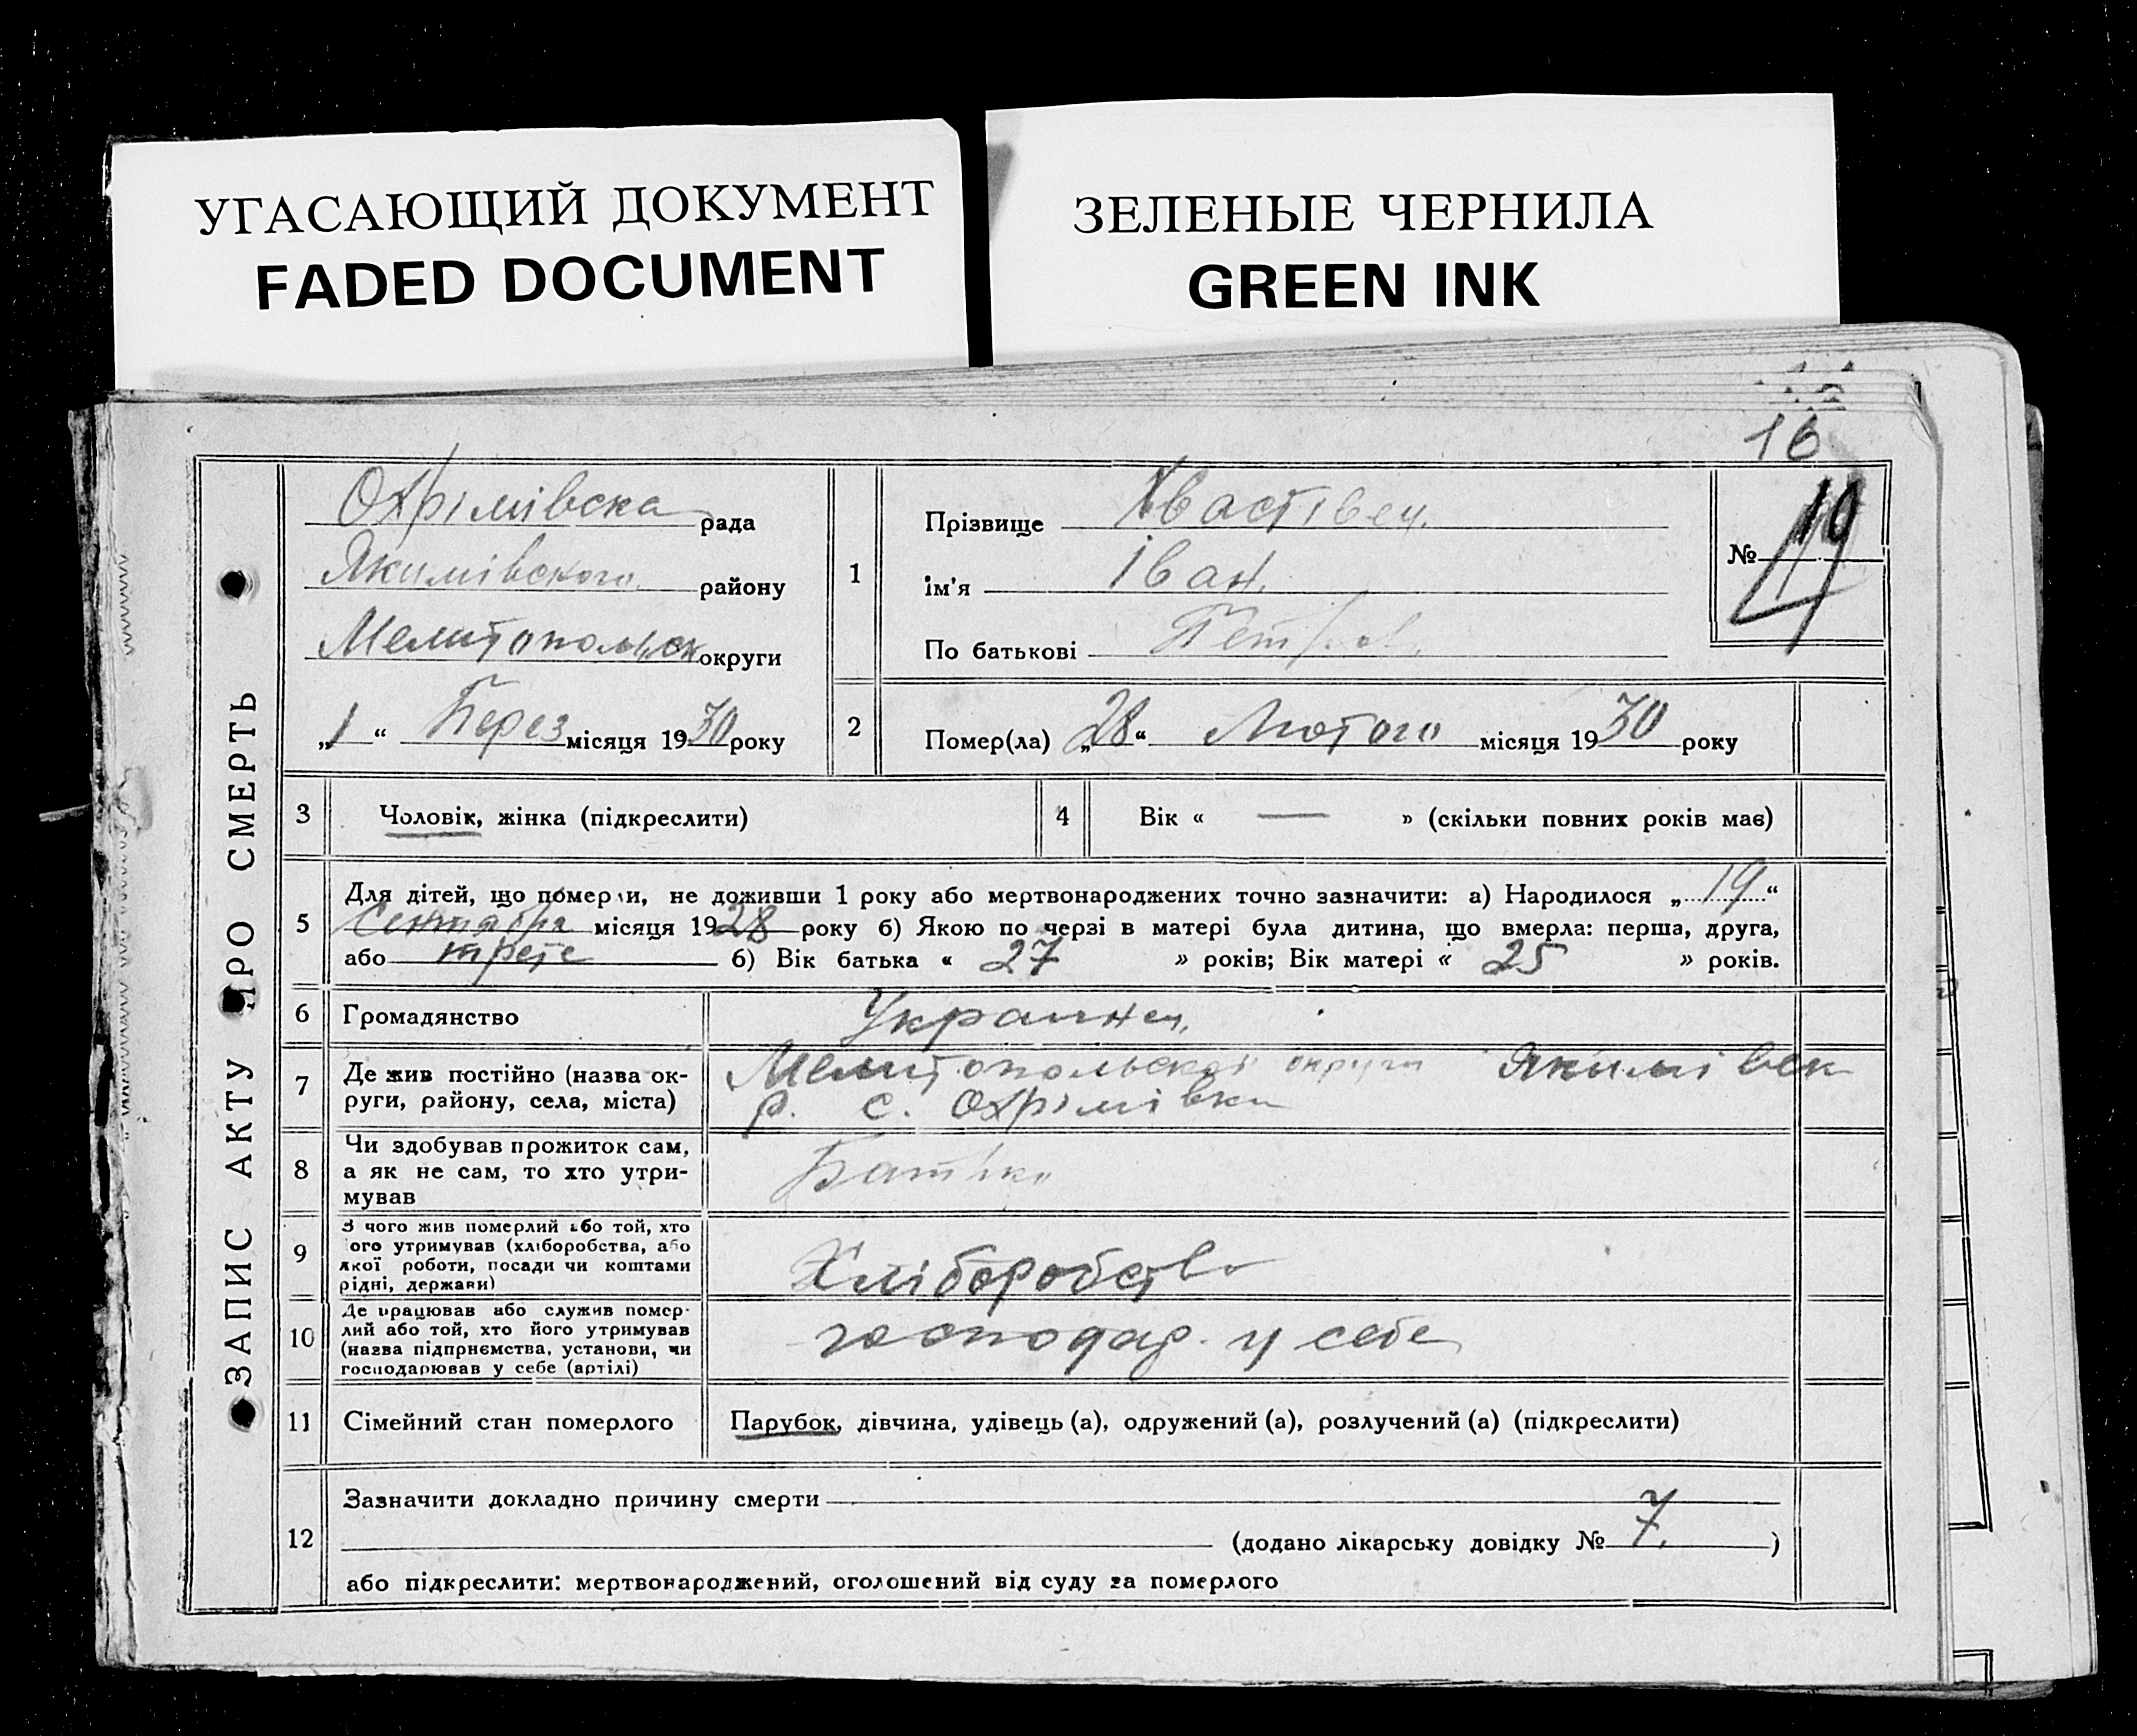 УГАСАЮЩИЙ ДОКУМЕНТ
FADED DOCUMENT
ЗЕЛЕНЫЕ ЧЕРНИЛА
GREEN INK
16
ЗАПИС АКТУ ПРО СМЕРТЬ
Охрімівска рада
Якимівского району
Мелитопольск округи
„1“ Берез місяця 1930 року
1
Прізвище Хвастівец.
Ім'я Іван.
По батькові Петров.
№ 19
2
Помер(ла) „28“ Лютого місяця 1930 року
3
Чоловік, жінка (підкреслити)
4
Вік « — » (скільки повних років має)
5
Для дітей, що померли, не доживши 1 року або мертвонароджених точно зазначити: а) Народилося „19“
Сентября місяця 1928 року б) Якою по черзі в матері була дитина, що вмерла: перша, друга,
або трете б) Вік батька « 27 » років; Вік матері « 25 » років.
6
Громадянство
Украинец.
7
Де жив постійно (назва ок-
руги, району, села, міста)
Мелитопольской округи Якимівск
р. с. Охрімівка
8
Чи здобував прожиток сам,
а як не сам, то хто утри-
мував
Батько
9
З чого жив померлий або той, хто
його утримував (хліборобства, або
якої роботи, посади чи коштами
рідні, держави)
Хліборобство
10
Де працював або служив помер-
лий або той, хто його утримував
(назва підприємства, установи, чи
господарював у себе (артілі)
господар. у себе
11
Сімейний стан померлого
Парубок, дівчина, удівець (а), одружений (а), розлучений (а) (підкреслити)
12
Зазначити докладно причину смерти
(додано лікарську довідку № 7. )
або підкреслити: мертвонароджений, оголошений від суду за померлого